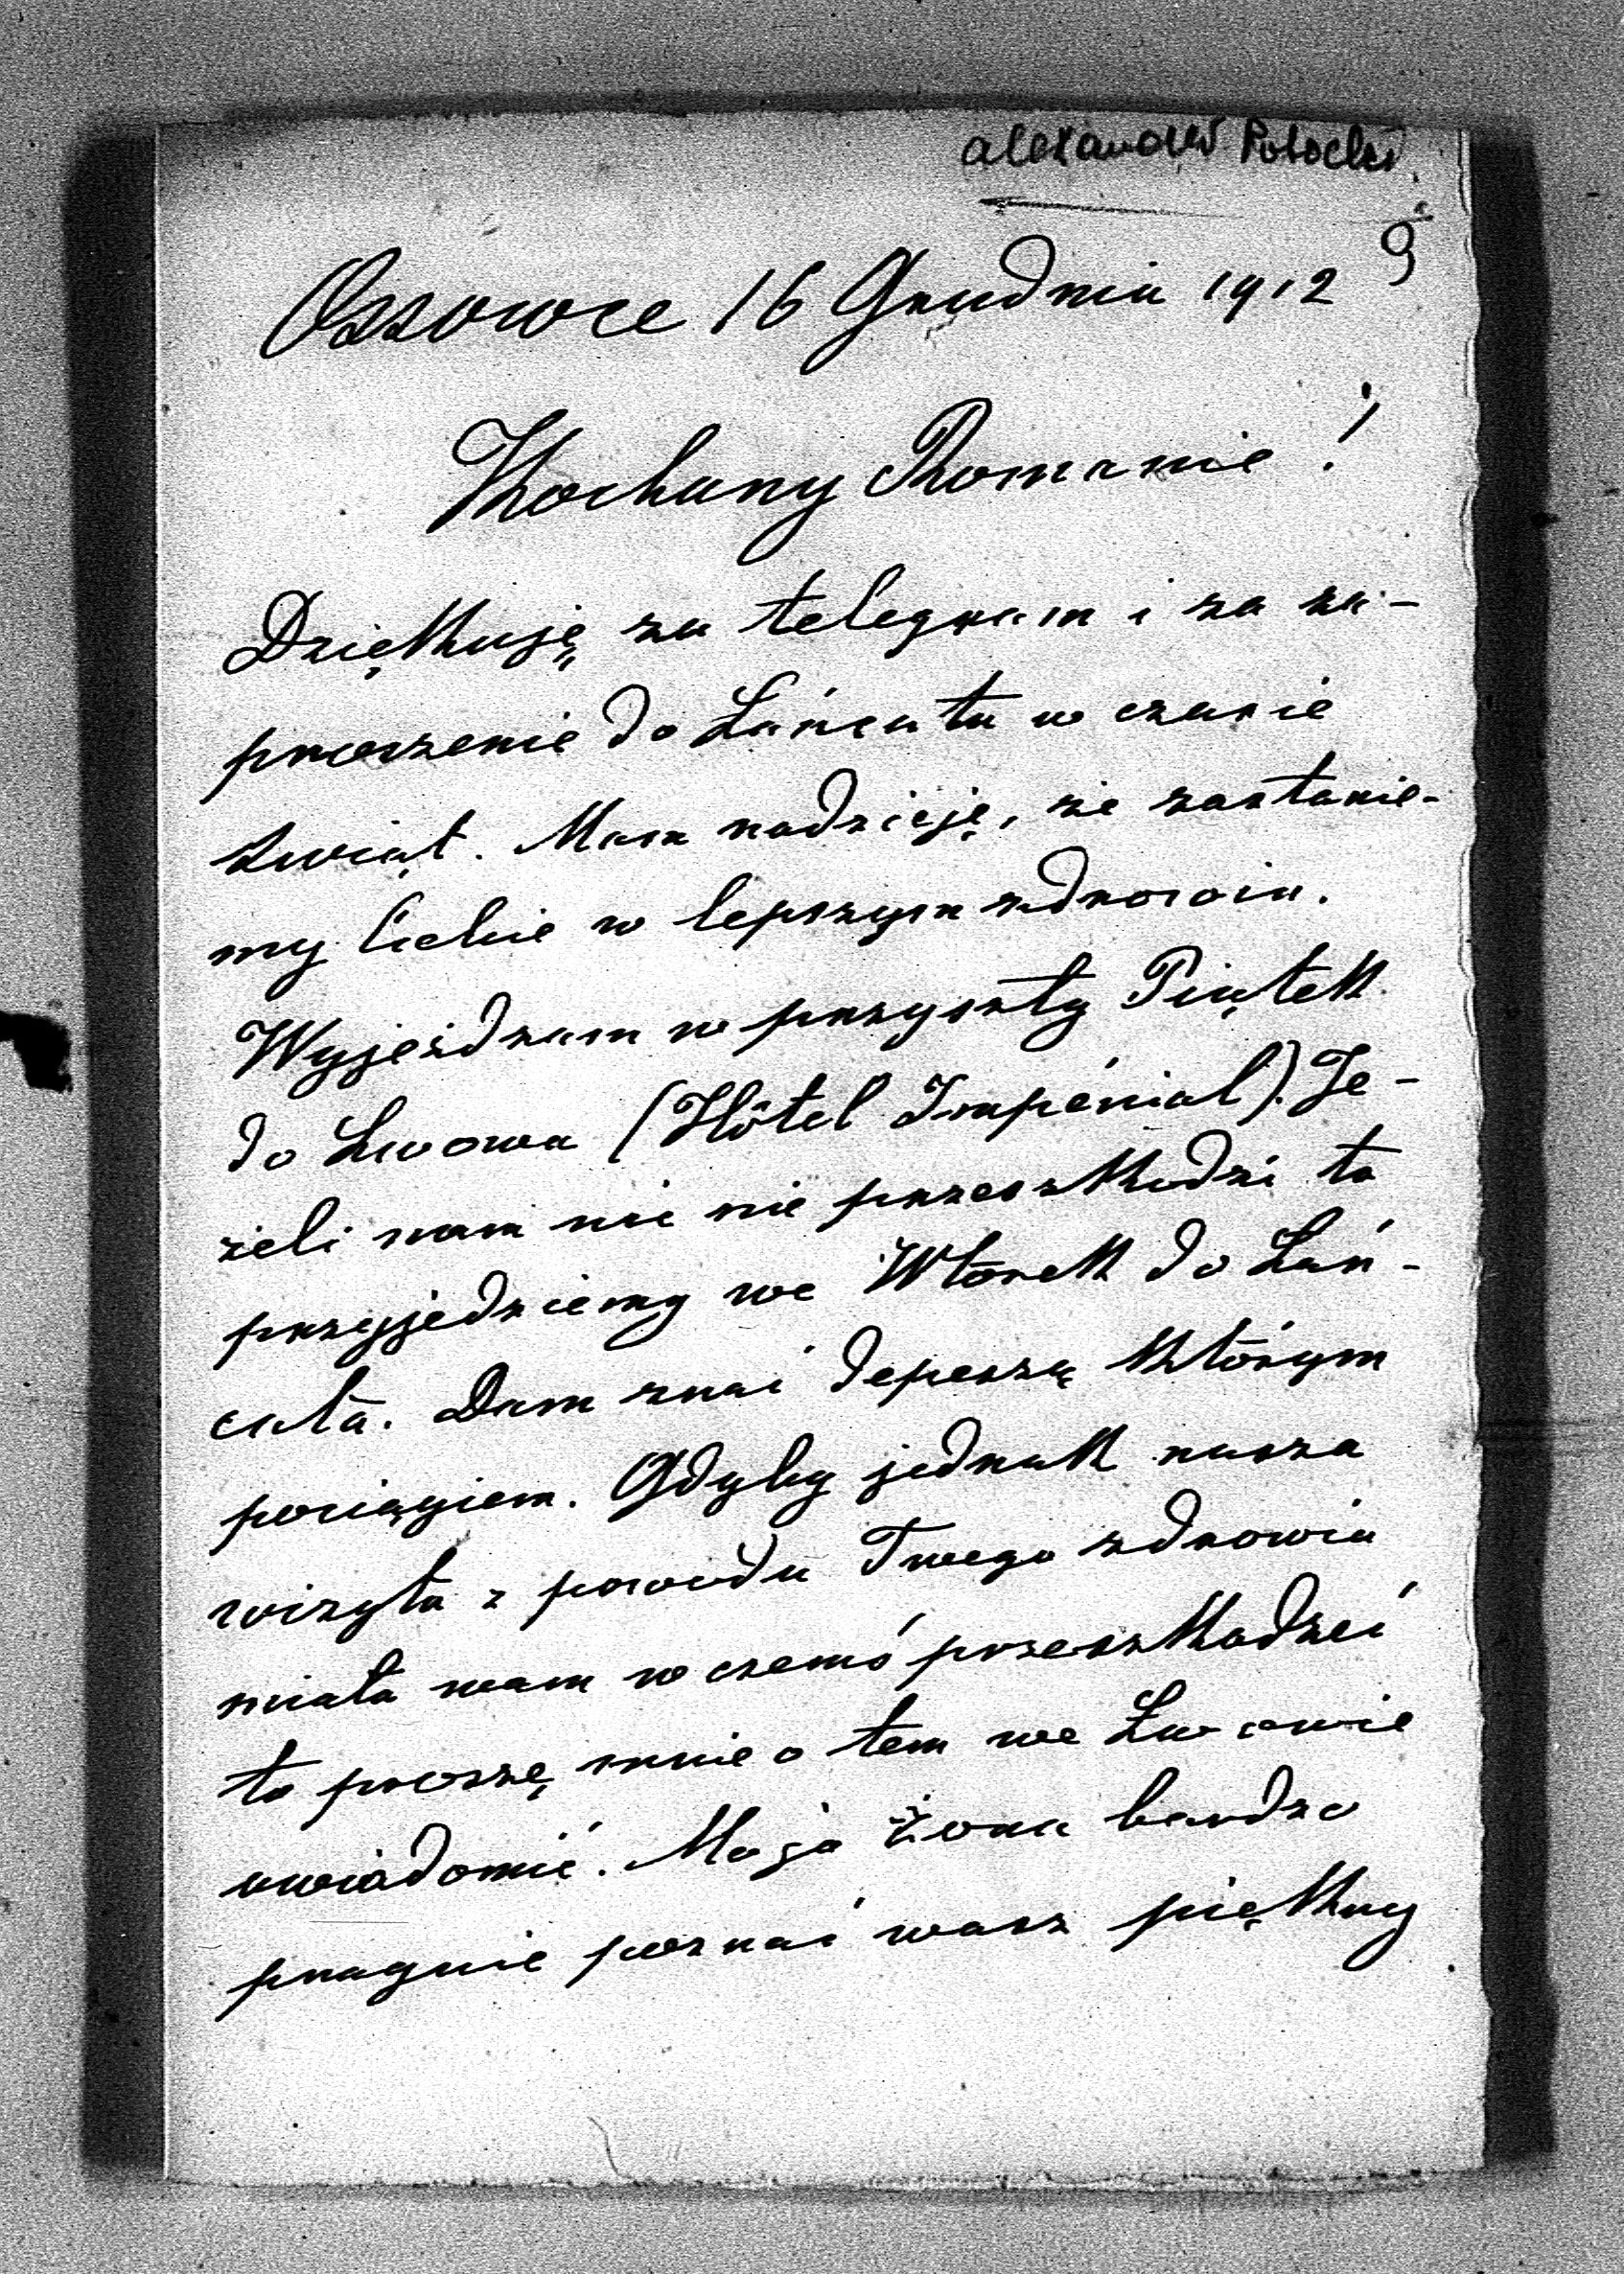 Alexander Potocki
9
Ossowce 16 Grudnia 1912
Kochany Romanie!
Dziękuję za telegram i za za-
proszenie do Łańcuta w czasie
świąt. Mam nadzieję, że zastanie-
my Ciebie w lepszym zdrowiu.
Wyjeżdzam w przyszły Piątek
do Lwowa (Hôtel Impérial). Je-
żeli nam nic nie przeszkodzi to
przyjedziemy we Wtorek do Łań-
cuta. Dam znać depeszą którym
pociągiem. Gdyby jednak nasza
wizyta z powodu Twego zdrowia
miała wam w czemś przeszkadzać
to proszę mnie o tem we Lwowie
uwiadomić. Moja żona bardzo
pragnie poznać wasz piękny